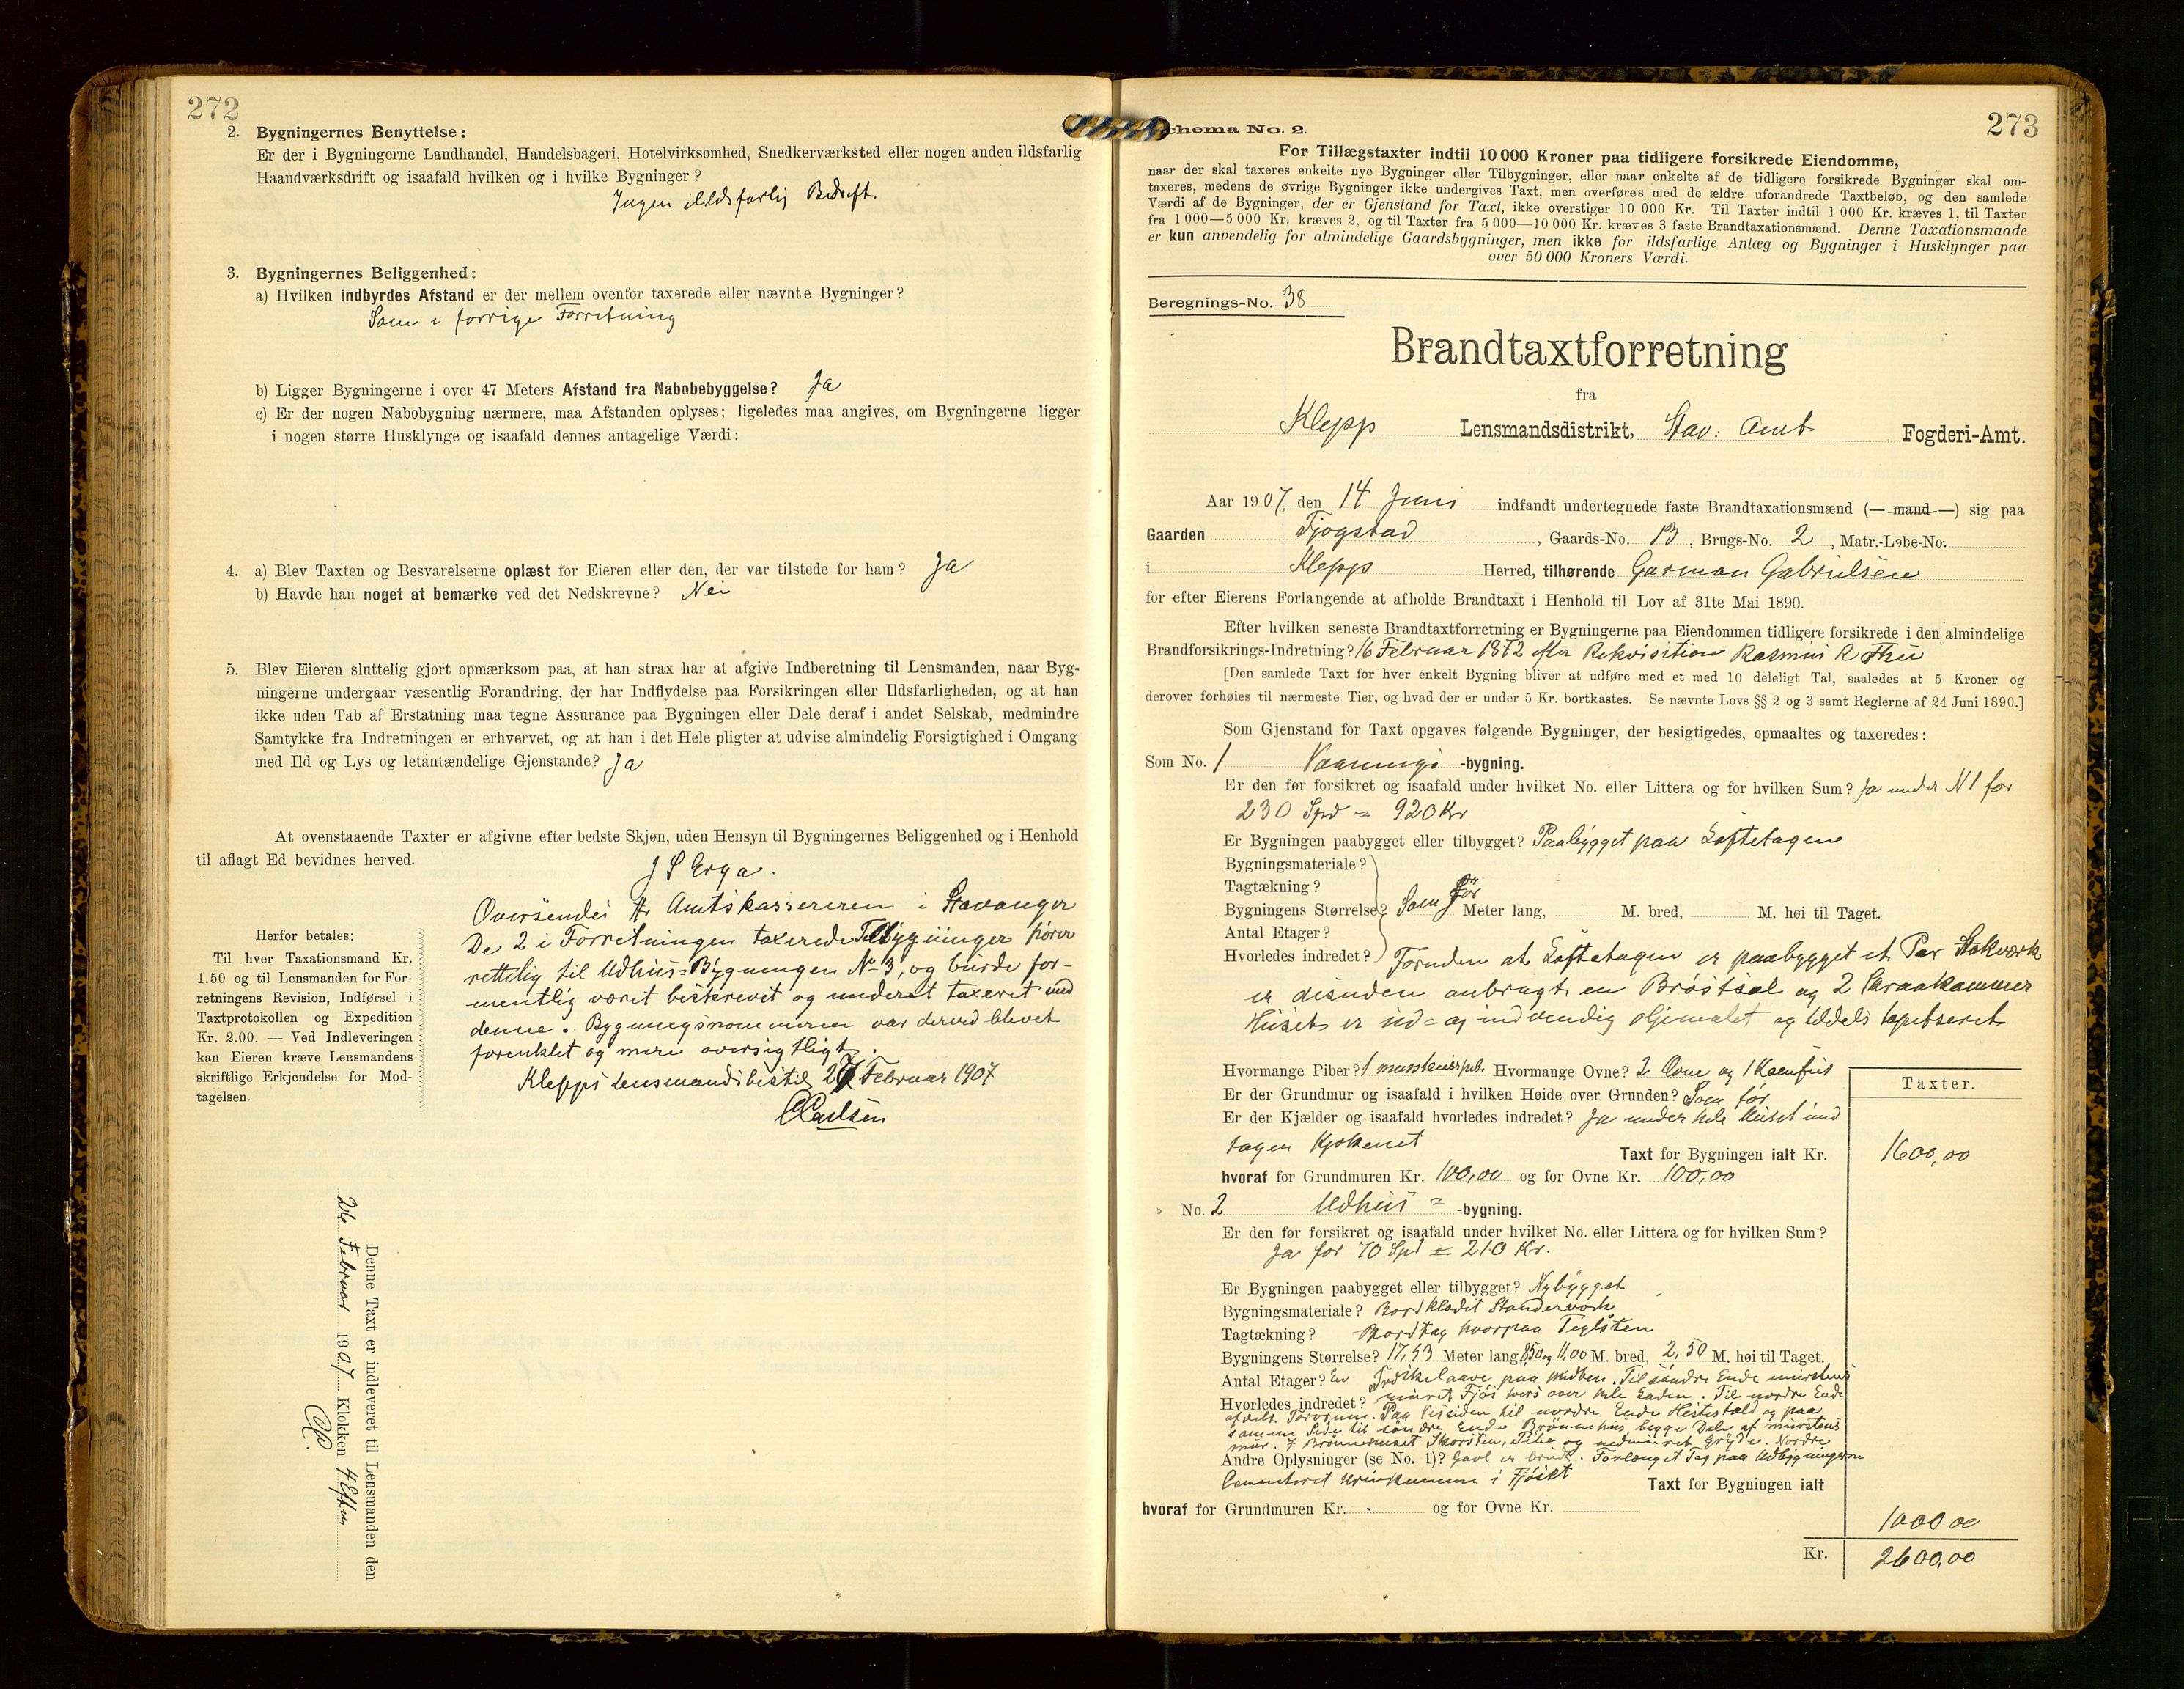 272
2. Bygningernes Benyttelse:
Er der i Bygningerne Landhandel, Handelsbageri, Hotelvirksomhed, Snedkerværksted eller nogen anden ildsfarlig
Haandværksdrift og isaafald hvilken og i hvilke Bygninger?
Ingen ildsfarlig Bedrift
3. Bygningernes Beliggenhed:
a) Hvilken indbyrdes Afstand er der mellem ovenfor taxerede eller nævnte Bygninger?
Som i forrige Forretning
b) Ligger Bygningerne i over 47 Meters Afstand fra Nabobebyggelse? Ja
c) Er der nogen Nabobygning nærmere, maa Afstanden oplyses; ligeledes maa angives, om Bygningerne ligger
i nogen større Husklynge og isaafald dennes antagelige Værdi:
4. a) Blev Taxten og Besvarelserne oplæst for Eieren eller den, der var tilstede for ham? Ja
b) Havde han noget at bemærke ved det Nedskrevne? Nei
5. Blev Eieren sluttelig gjort opmærksom paa, at han strax har at afgive Indberetning til Lensmanden, naar Byg-
ningerne undergaar væsentlig Forandring, der har Indflydelse paa Forsikringen eller Ildsfarligheden, og at han
ikke uden Tab af Erstatning maa tegne Assurance paa Bygningen eller Dele deraf i andet Selskab, medmindre
Samtykke fra Indretningen er erhvervet, og at han i det Hele pligter at udvise almindelig Forsigtighed i Omgang
med Ild og Lys og letantændelige Gjenstande? Ja
At ovenstaaende Taxter er afgivne efter bedste Skjøn, uden Hensyn til Bygningernes Beliggenhed og i Henhold
til aflagt Ed bevidnes herved.
J S Erga.
Oversendes Hr Amtskassereren i Stavanger
De 2 i Forretningen taxerede Tilbygninger hører
rettelig til Udhus-Bygningen No 3, og burde for-
mentlig været beskrevet og underet taxeret med
denne. Bygningsnommeren var derved blevet
forenklet og mere oversigtligt.
Klepps Lensmandsbestil 27 Februar 1907
Carlsen
Herfor betales:
Til hver Taxationsmand Kr.
1.50 og til Lensmanden for For-
retningens Revision, Indførsel i
Taxtprotokollen og Expedition
Kr. 2.00. — Ved Indleveringen
kan Eieren kræve Lensmandens
skriftlige Erkjendelse for Mod-
tagelsen.
Denne Taxt er indleveret til Lensmanden den
26 Februar 1907 Klokken 4 Efter
273
Schema No. 2.
For Tillægstaxter indtil 10 000 Kroner paa tidligere forsikrede Eiendomme,
naar der skal taxeres enkelte nye Bygninger eller Tilbygninger, eller naar enkelte af de tidligere forsikrede Bygninger skal om-
taxeres, medens de øvrige Bygninger ikke undergives Taxt, men overføres med de ældre uforandrede Taxtbeløb, og den samlede
Værdi af de Bygninger, der er Gjenstand for Taxt, ikke overstiger 10 000 Kr. Til Taxter indtil 1 000 Kr. kræves 1, til Taxter
fra 1 000—5 000 Kr. kræves 2, og til Taxter fra 5 000—10 000 Kr. kræves 3 faste Brandtaxationsmænd. Denne Taxationsmaade
er kun anvendelig for almindelige Gaardsbygninger, men ikke for ildsfarlige Anlæg og Bygninger i Husklynger paa
over 50 000 Kroners Værdi.
Beregnings-No. 38
Brandtaxtforretning
fra
Klepp Lensmandsdistrikt, Stav: Amt Fogderi-Amt.
Aar 1907, den 14 Juni indfandt undertegnede faste Brandtaxationsmænd (— mand —) sig paa
Gaarden Tjøgstad, Gaards-No. 13, Brugs-No. 2, Matr.-Løbe-No.
i Klepp Herred, tilhørende Garman Gabrielsen
for efter Eierens Forlangende at afholde Brandtaxt i Henhold til Lov af 31te Mai 1890.
Efter hvilken seneste Brandtaxtforretning er Bygningerne paa Eiendommen tidligere forsikrede i den almindelige
Brandforsikrings-Indretning? 16 Februar 1872 efter Rekvisition Rasmus R Thu
[Den samlede Taxt for hver enkelt Bygning bliver at udføre med et med 10 deleligt Tal, saaledes at 5 Kroner og
derover forhøies til nærmeste Tier, og hvad der er under 5 Kr. bortkastes. Se nævnte Lovs §§ 2 og 3 samt Reglerne af 24 Juni 1890.]
Som Gjenstand for Taxt opgaves følgende Bygninger, der besigtigedes, opmaaltes og taxeredes:
Som No. 1 Vaanings -bygning.
Er den før forsikret og isaafald under hvilket No. eller Littera og for hvilken Sum? Ja under N 1 for
230 Spd = 920 Kr
Er Bygningen paabygget eller tilbygget? Paabygget paa Loftetagen
Bygningsmateriale?
Tagtækning?
Bygningens Størrelse? Som før Meter lang, M. bred, M. høi til Taget.
Antal Etager?
Hvorledes indredet? Foruden at Loftetagen er paabygget et Par Stokværk
er desuden anbragt en Brøstsal og 2 Skraakammer
Huset er ud- og indvendig oljemalet og tildels tapetseret
Hvormange Piber? 1 murstenspibe Hvormange Ovne? 2 Ovne og 1 Komfur
Er der Grundmur og isaafald i hvilken Høide over Grunden? Som før
Er der Kjælder og isaafald hvorledes indredet? Ja under hele Huset und
tagen Kjøkenet
Taxt for Bygningen ialt Kr.
Taxter.
1600,00
hvoraf for Grundmuren Kr. 100,00 og for Ovne Kr. 100,00
» No. 2 Udhus= -bygning.
Er den før forsikret og isaafald under hvilket No. eller Littera og for hvilken Sum?
Ja for 70 Spd = 210 Kr.
Er Bygningen paabygget eller tilbygget? Nybygget
Bygningsmateriale? Bordklædt Standerverk
Tagtækning? Bordtag hvorpaa Teglsten
Bygningens Størrelse? 17,53 Meter lang 8,50 og 11,00 M. bred, 2,50 M. høi til Taget.
Antal Etager? En Træskelaave paa Midten. Til søndre Ende murstens
Hvorledes indredet? muret Fjøs tvers over hele Laden. Til nordre Ende
afdelt Torvrum. Paa Vestsiden til nordre Ende Hestestald og paa
samme Side til søndre Ende Brønnehus, begge Dele af murstens
mur. I Brønnehuset Skorsten, Pibe og nedmuret Gryde. Nordre
Andre Oplysninger (se No. 1)? Gavl er brudt. Forlænget Tag paa Udbygningerne
Cementeret Urinkumme i Fjøset
Taxt for Bygningen ialt
1000 00
hvoraf for Grundmuren Kr. - og for Ovne Kr.
Kr. 2600,00